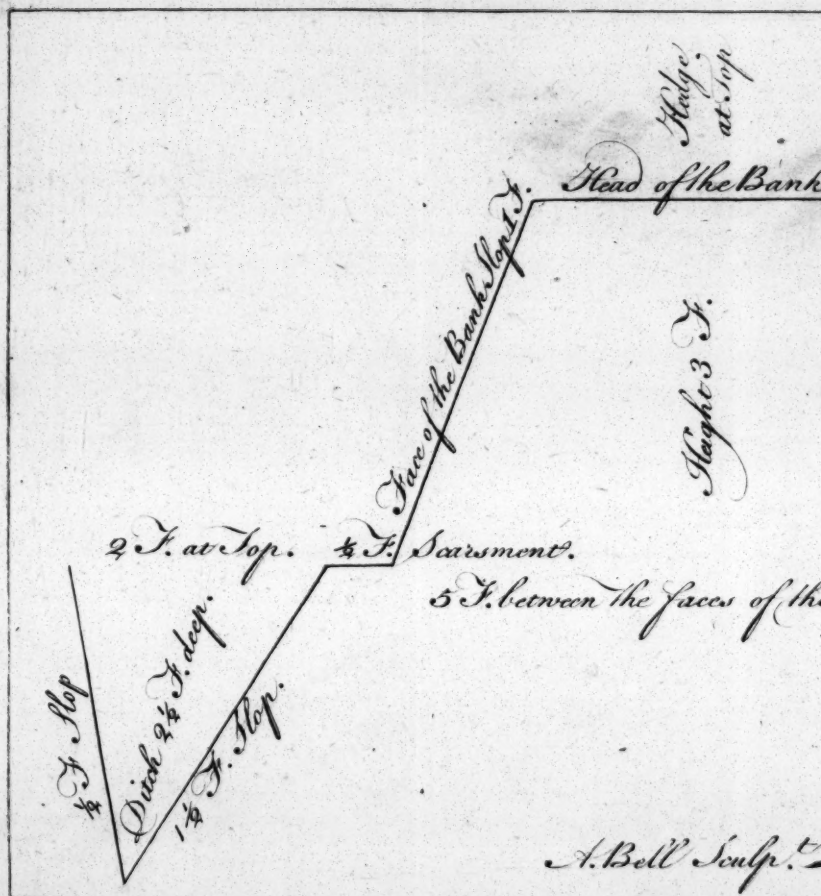 Hedge
at Top
Head of the Bank
Face of the Bank Slop 1 F.
Haght 3 F.
2 F. at Top.
½ F. Scarsment.
5 F. between the faces of the
½ F Slop
Ditch 2½ F. deep.
1½ F. Slop.
A. Bell Sculp.t